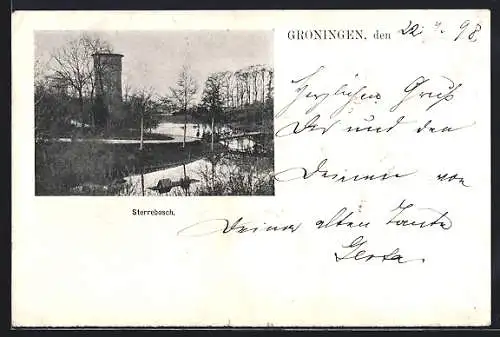 GRONINGEN, den 22 98
Herzlichen Gruß
Dir und den
Deinen von
Sterrebosch.
Deiner alten Tante